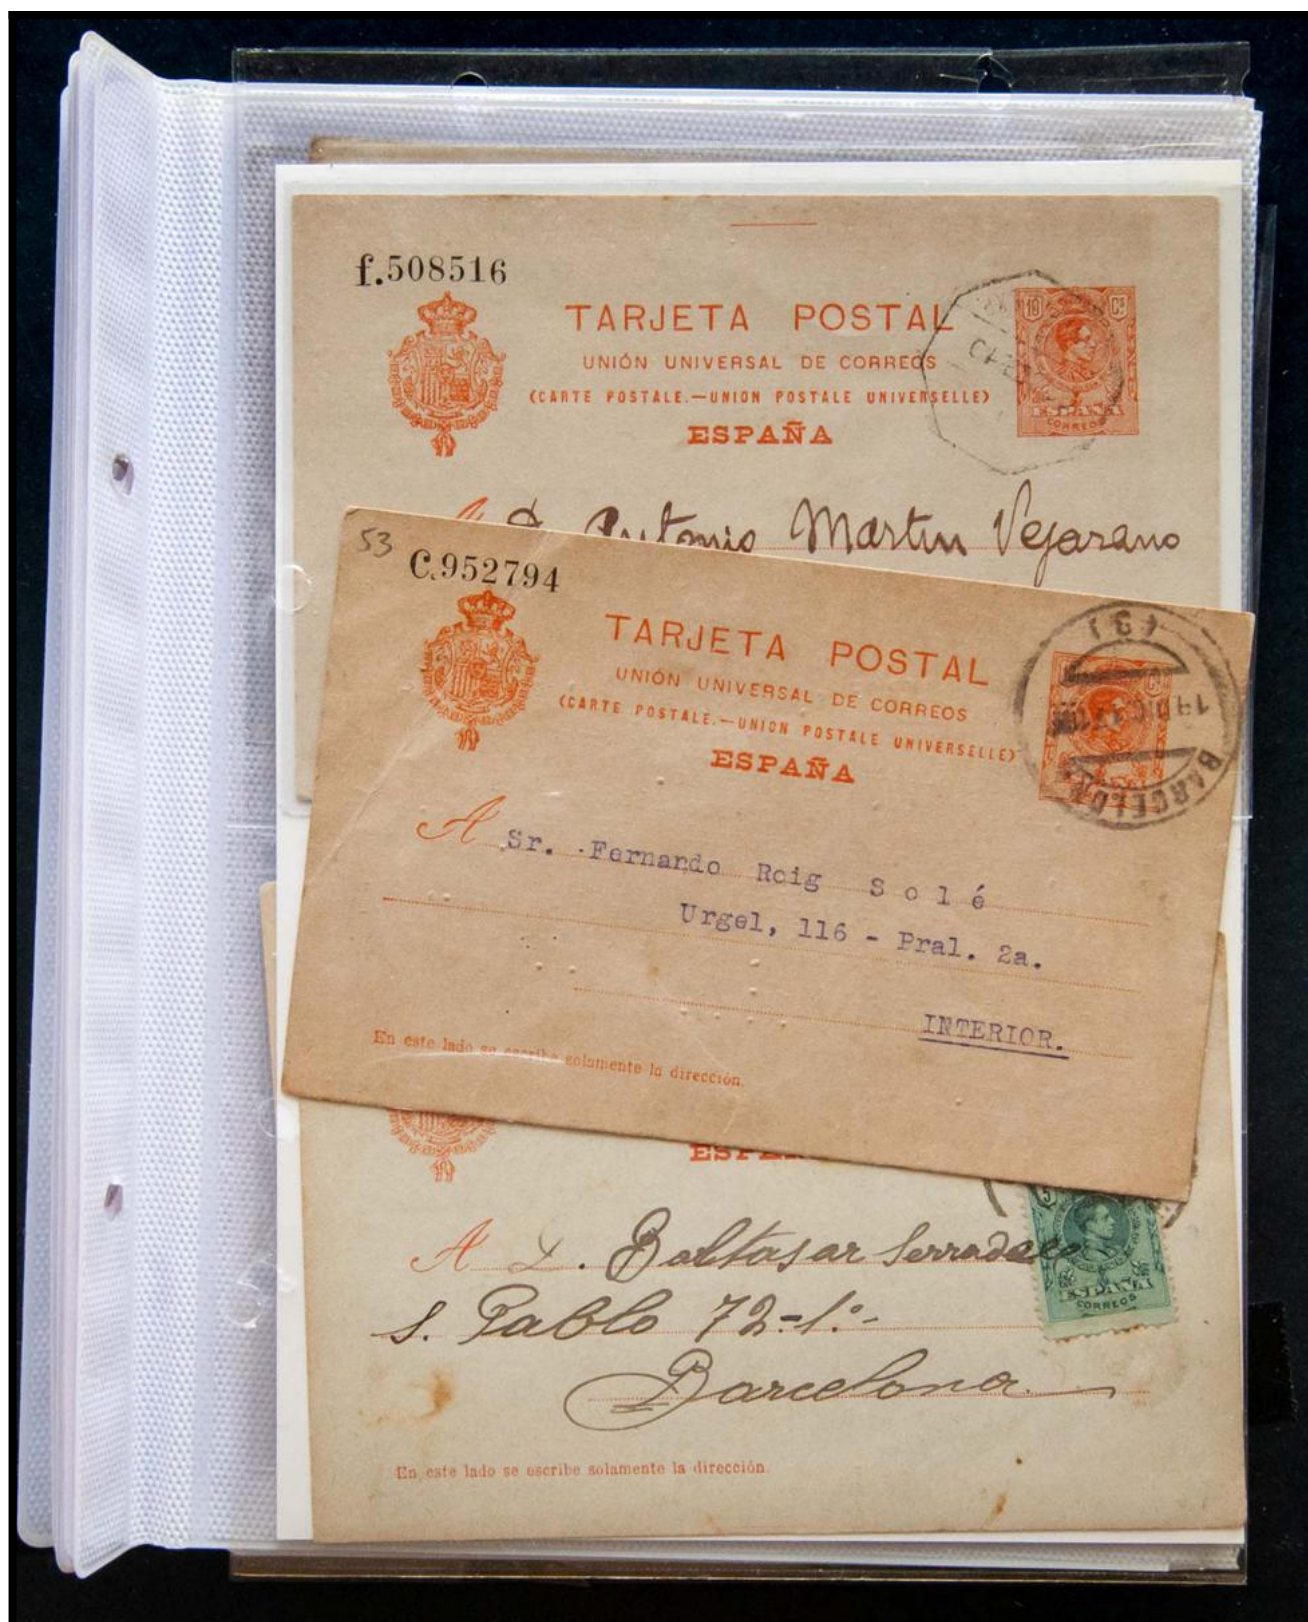 f.508516
TARJETA POSTAL
UNIÓN UNIVERSAL DE CORREOS
(CARTE POSTALE.—UNION POSTALE UNIVERSELLE)
ESPAÑA
10 Cs
ESPAÑA
CORREOS
A D. Antonio Martin Vejarano
53
C.952794
TARJETA POSTAL
UNIÓN UNIVERSAL DE CORREOS
(CARTE POSTALE.—UNION POSTALE UNIVERSELLE)
ESPAÑA
(3)
DIC
BARCELONA
A Sr. Fernando Roig Solé
Urgel, 116 - Pral. 2a.
INTERIOR.
En este lado se escribe solamente la dirección.
ESPAÑA
5
ESPAÑA
CORREOS
A D. Baltasar
S. Pablo 72-1.º-
Barcelona
En este lado se escribe solamente la dirección.